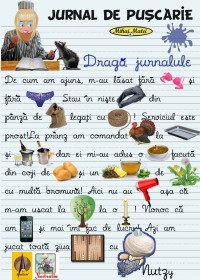 JURNAL DE PUȘCĂRIE
Mihai Matei
Dragă jurnalule
De cum am ajuns, m-au lăsat fără și
fără Stau în niște din
pânză de legați cu ! Serviciul este
prost! La prânz am comandat la
și dar ei mi-au adus o făcută
din coji de și un de
cu multă bromură! Aici nu au așa că
m-am uscat la la o ! Noroc că
am și mai îmi fac de lucru! Azi am
jucat toată ziua cu
Nutzy